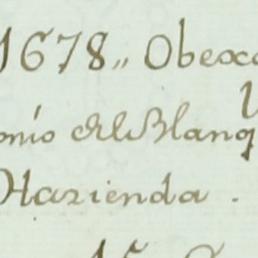 1678,, Obexa
onio del Blanq
Hazienda .